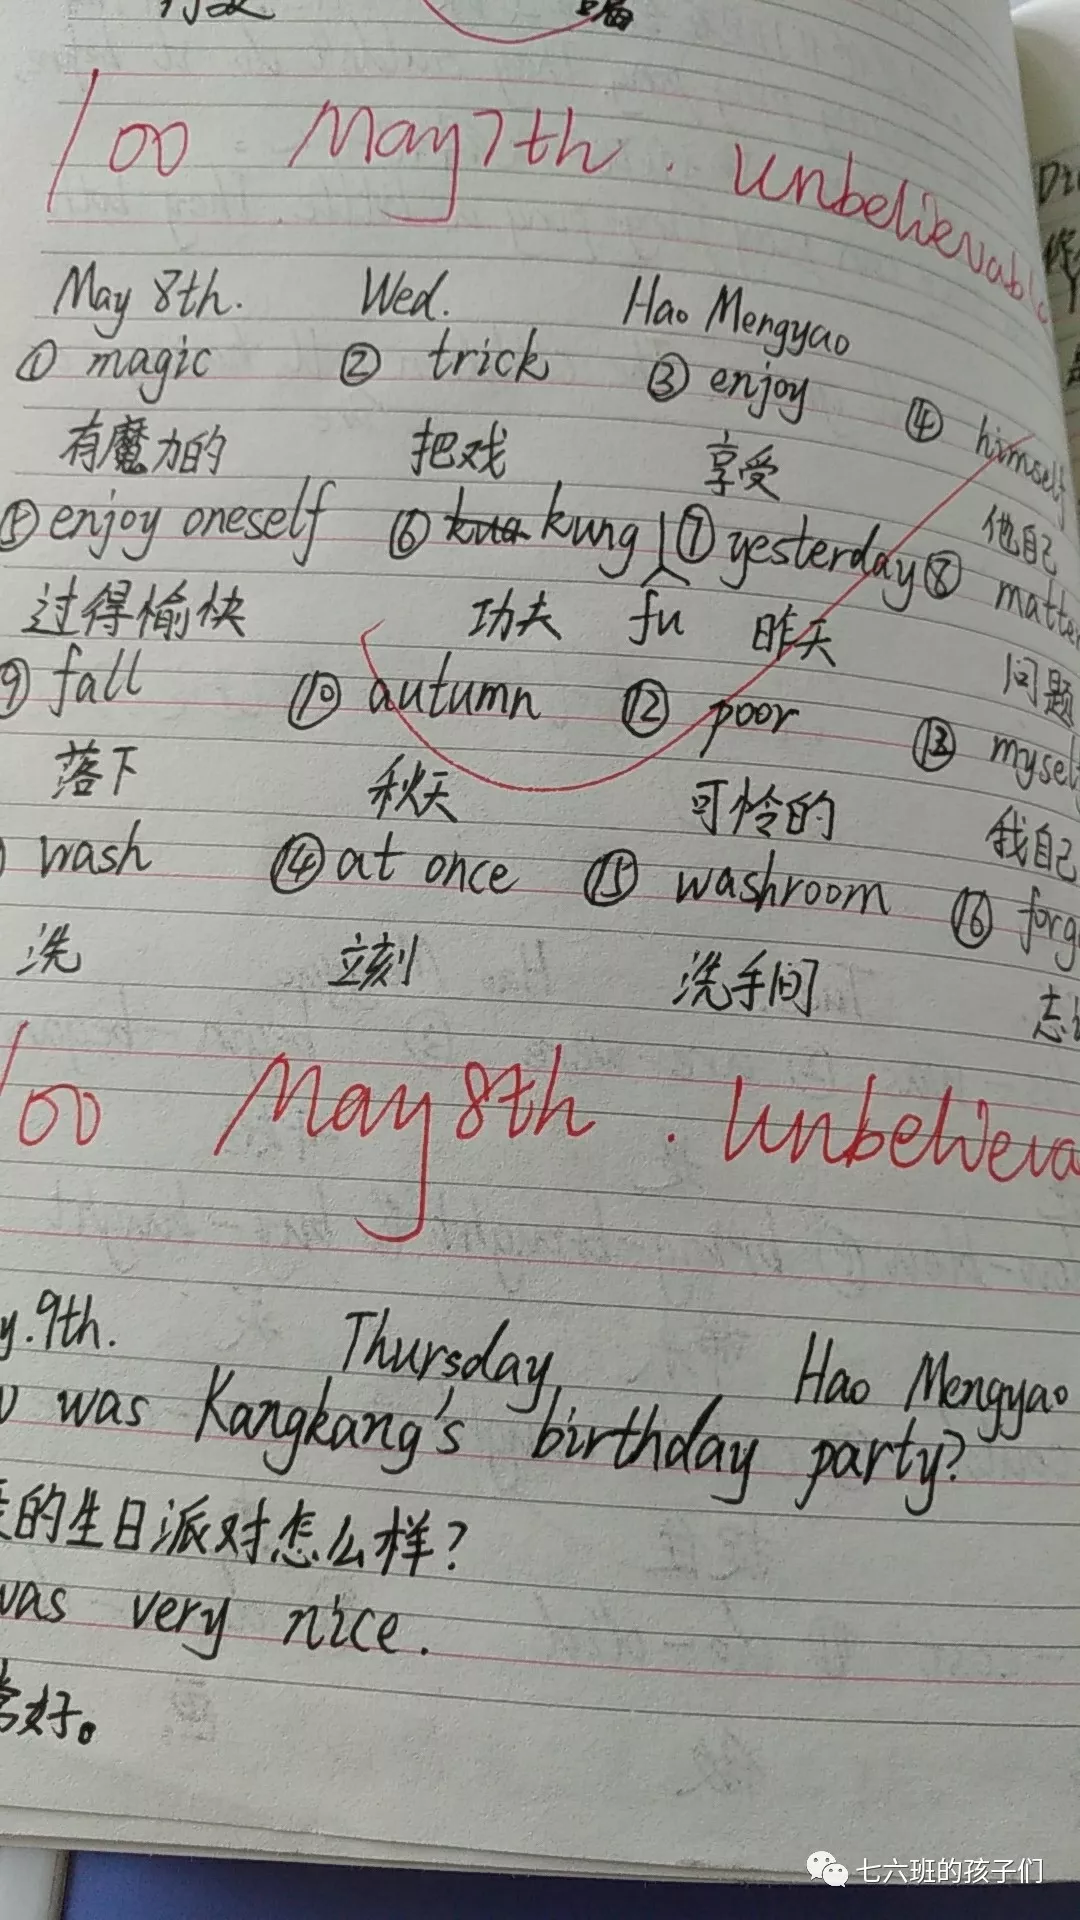 100 May 7th. Unbelievable
May 8th. Wed. Hao Mengyao
① magic ② trick ③ enjoy ④ himself
有魔力的 把戏 享受 他自己
⑤ enjoy oneself ⑥ kung fu ⑦ yesterday ⑧ matter
过得愉快 功夫 昨天 问题
⑨ fall ⑩ autumn ⑫ poor ⑬ myself
落下 秋天 可怜的 我自己
wash ⑭ at once ⑮ washroom ⑯ forg
洗 立刻 洗手间
100 May 8th. Unbelieva
y. 9th. Thursday Hao Mengyao
was Kangkang's birthday party?
的生日派对怎么样?
was very nice.
常好。
七六班的孩子们